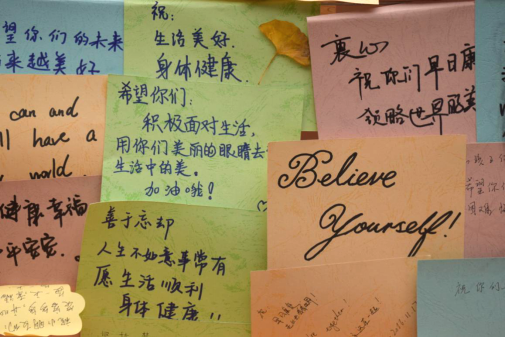 望你们的未来
来越美好
祝:
生活美好.
身体健康.
衷心
祝你们早日康
领略世界的美
can and
ll have a
world.
希望你们:
积极面对生活,
用你们美丽的眼睛去
生活中的美。
加油哦!
Believe
Yourself!
健康幸福
平安安.
善于忘却
人生不如意事常有
愿生活顺利
身体健康!!
祝你的